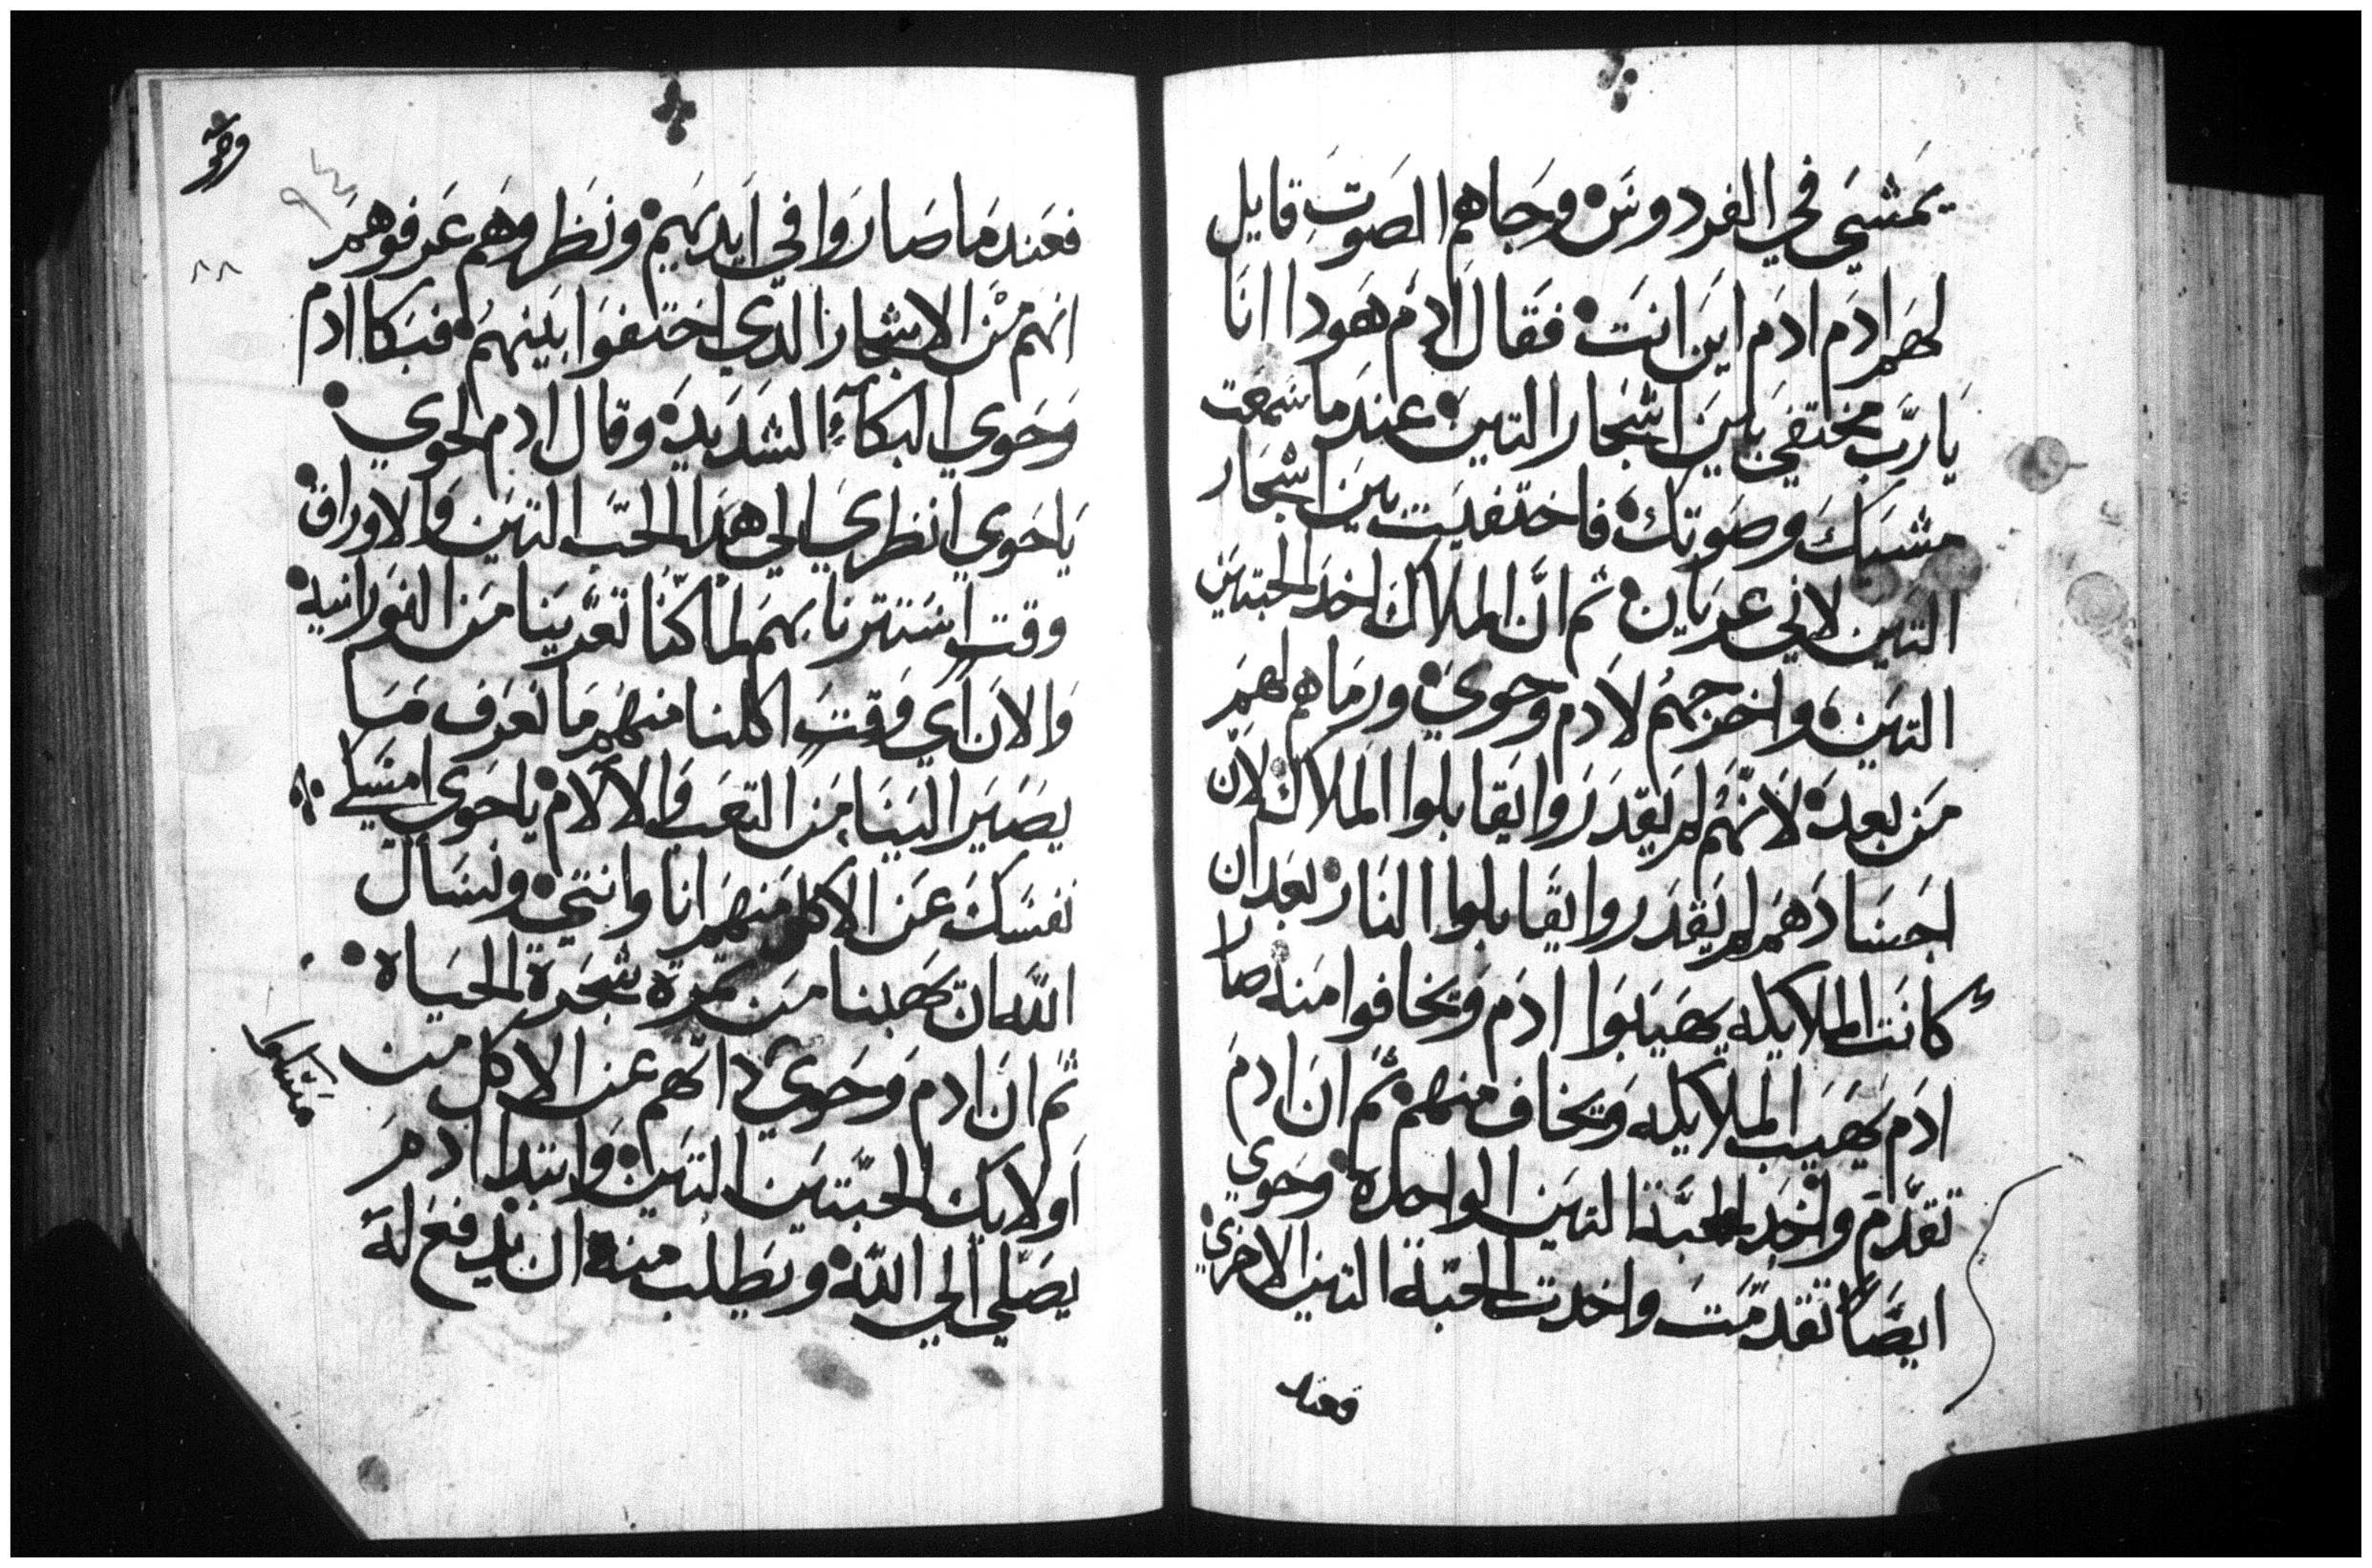 يمشي في الفردوس وجاهم الصوت قايل
لهم ادم ادم اين انت فقال ادم هودا انا
يارب مختفي بين اشجار التين عندما سمعت
مشيك وصوتك فاختفيت بين اشجار
التين لاني عريان ثم ان الملاك اخد الحبتين
التين واخرجهم لادم وحوي ورماهم لهم
من بعد لانهم لم يقدروا يقابلوا الملاك لان
اجسادهم لم يقدروا يقابلوا النار بعد ان
كانت الملايكه يهيبوا ادم ويخافوا منه صار
ادم يهيب الملايكه ويخاف منهم ثم ان ادم
تقدم واخد الحبة التين الواحدة وحوي
ايضا تقدمت واخدت الحبة التين الاخري
فعند
فعندما صاروا في ايديهم ونظروهم عرفوهم
انهم من الاشجار الدي اختفوا بينهم فبكا ادم
وحوي البكاء الشديد وقال ادم لحوي
ياحوي انظري الي هدا الحب التين والاوراق
وقت استترنا بهم لما كنا تعرينا من النورانيه
والان اي وقت اكلنا منهم ما نعرف ما
يصير الينا من التعب والالام ياحوي امسكي
نفسك عن الاكل منهم انا وانتي ونسال
الله ان يهبنا من تمرة شجرة الحياه
ثم ان ادم وحوي داتهم عن الاكل من
اولايك الحبتين التين وابتدا ادم
يصلي الي الله ويطلب منه ان يدفع له
٨٨